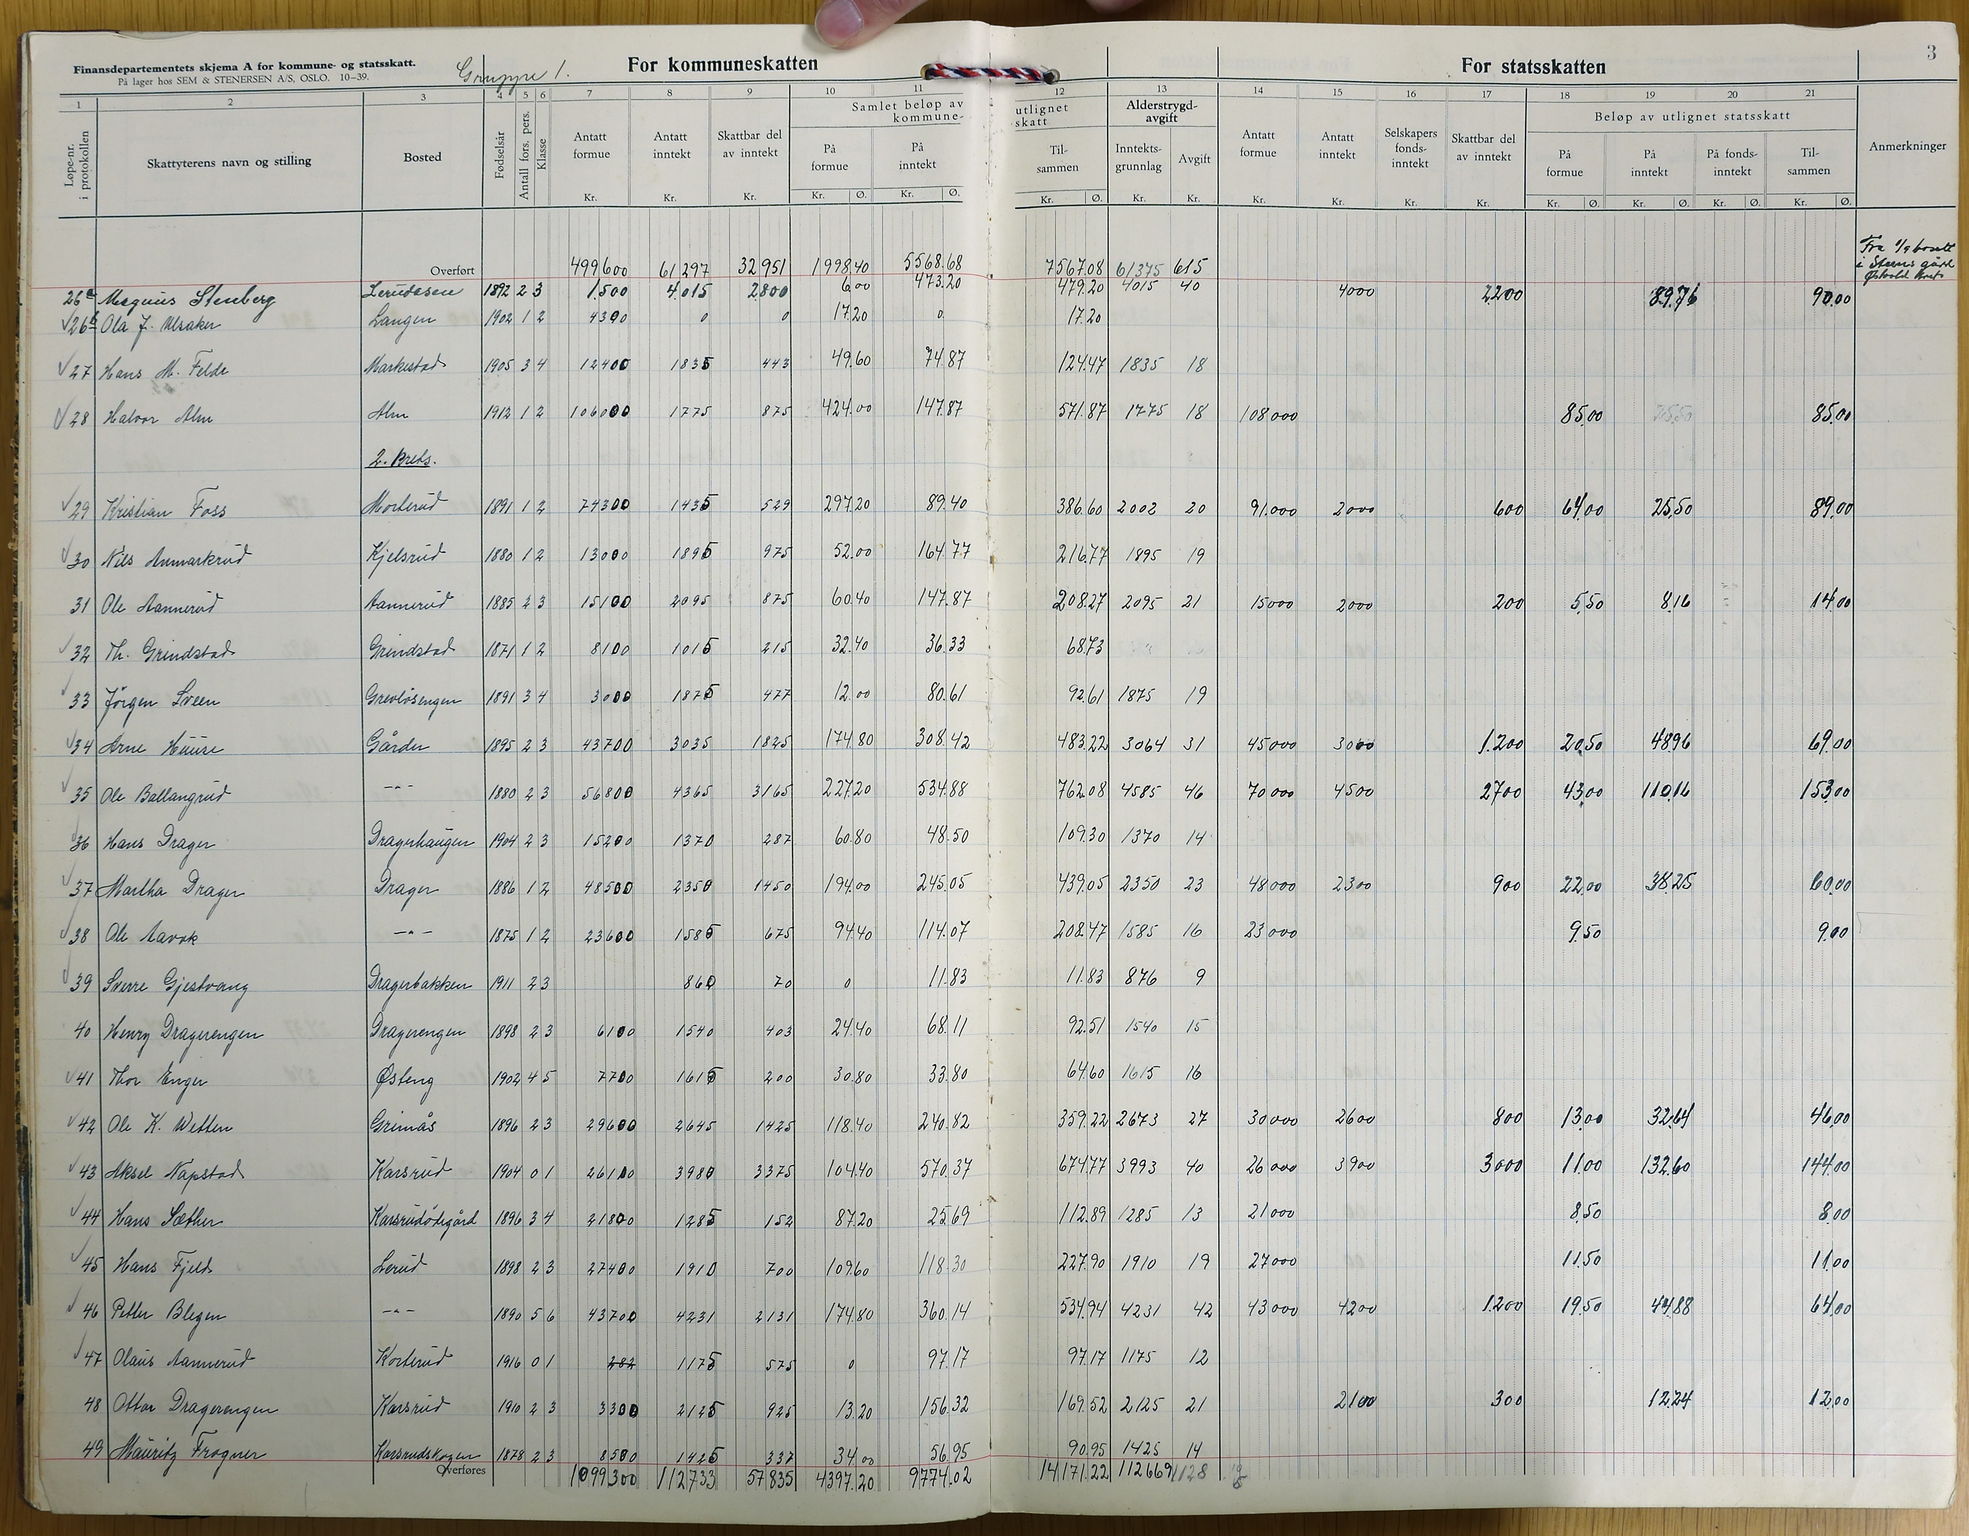 Finansdepartementets skjema A for kommune- og statsskatt.
På lager hos SEM & STENERSEN A/S, OSLO. 10–39.
Gruppe 1.
For kommuneskatten
For statsskatten
3
1 2 3 4 5 6 7 8 9 10 11 12 13 14 15 16 17 18 19 20 21
Løpe-nr. i protokollen
Skattyterens navn og stilling
Bosted
Fødselsår
Antall fors. pers.
Klasse
Antatt formue Kr.
Antatt inntekt Kr.
Skattbar del av inntekt Kr.
Samlet beløp av utlignet kommune-skatt
På formue Kr. Ø.
På inntekt Kr. Ø.
Til-sammen Kr. Ø.
Alderstrygd-avgift
Inntekts-grunnlag Kr.
Avgift Kr.
Antatt formue Kr.
Antatt inntekt Kr.
Selskapers fonds-inntekt Kr.
Skattbar del av inntekt Kr.
Beløp av utlignet statsskatt
På formue Kr. Ø.
På inntekt Kr. Ø.
På fonds-inntekt Kr. Ø.
Til-sammen Kr. Ø.
Anmerkninger
Fra 1/9 bosatt
i Steens gård
Østvold krets
Overført 499600 61297 32951 1998.40 5568.68 7567.08 61375 615
26a Magnus Stenberg Lerudåsen 1892 2 3 1500 4015 2800 6.00 473.20 479.20 4015 40 4000 2200 89.76 90.00
26b Ola J. Ulsaker Langen 1902 1 2 4300 0 0 17.20 0 17.20
27 Hans M. Felde Markestad 1905 3 4 12400 1835 443 49.60 74.87 124.47 1835 18
28 Halvor Alm Alm 1912 1 2 106000 1775 875 424.00 147.87 571.87 1775 18 108000 85.00 85.00
2. Krets.
29 Kristian Foss Morterud 1891 1 2 74300 1435 529 297.20 89.40 386.60 2002 20 91.000 2000 600 64.00 25.50 89.00
30 Nils Anmarkrud Kjelsrud 1880 1 2 13000 1895 975 52.00 164.77 216.77 1895 19
31 Ole Aannerud Aannerud 1885 2 3 15100 2095 875 60.40 147.87 208.27 2095 21 15000 2000 200 5.50 8.16 14.00
32 Th. Grindstad Grindstad 1871 1 2 8100 1015 215 32.40 36.33 68.73
33 Jørgen Sveen Grevløsengen 1891 3 4 3000 1875 477 12.00 80.61 92.61 1875 19
34 Arne Huuse Gårder 1895 2 3 43700 3035 1825 174.80 308.42 483.22 3064 31 45000 3000 1.200 20.50 48.96 69.00
35 Ole Ballangrud –"– 1880 2 3 56800 4365 3165 227.20 534.88 762.08 4585 46 70000 4500 2700 43.00 110.16 153.00
36 Hans Drager Dragerhaugen 1904 2 3 15200 1370 287 60.80 48.50 109.30 1370 14
37 Martha Drager Drager 1886 1 2 48500 2350 1450 194.00 245.05 439.05 2350 23 48000 2300 900 22.00 38.25 60.00
38 Ole Aavok –"– 1875 1 2 23600 1585 675 94.40 114.07 208.47 1585 16 23000 9.50 9.00
39 Sverre Gjestvang Dragerbakken 1911 2 3 860 70 0 11.83 11.83 876 9
40 Henry Dragerengen Dragerengen 1898 2 3 6100 1540 403 24.40 68.11 92.51 1540 15
41 Thor Enger Østeng 1902 4 5 7700 1615 200 30.80 33.80 64.60 1615 16
42 Ole K. Wetten Grimås 1896 2 3 29600 2645 1425 118.40 240.82 359.22 2673 27 30000 2600 800 13.00 32.64 46.00
43 Aksel Napstad Karsrud 1904 0 1 26100 3980 3375 104.40 570.37 674.77 3993 40 26000 3900 3000 11.00 132.60 144.00
44 Hans Sæther Karsrudødegård 1896 3 4 21800 1285 152 87.20 25.69 112.89 1285 13 21000 8.50 8.00
45 Hans Fjeld Lerud 1898 2 3 27400 1910 700 109.60 118.30 227.90 1910 19 27000 11.50 11.00
46 Petter Blegen –"– 1890 5 6 43700 4231 2131 174.80 360.14 534.94 4231 42 43000 4200 1.200 19.50 44.88 64.00
47 Olaus Aannerud Korterud 1916 0 1 282 1175 575 0 97.17 97.17 1175 12
48 Ottar Dragerengen Karsrud 1910 2 3 3300 2125 925 13.20 156.32 169.52 2125 21 2100 300 12.24 12.00
49 Mauritz Frogner Karsrudskogen 1878 2 3 8500 1425 337 34.00 56.95 90.95 1425 14
Overføres 1099300 112733 57835 4397.20 9774.02 14171.22 112669 1128